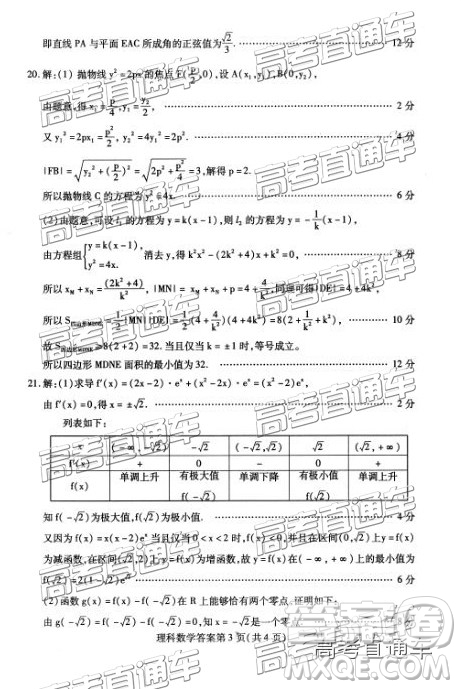 即直线 PA 与平面 EAC 所成角的正弦值为√2/3. …… 12 分
20.解:(1) 抛物线 y²=2px 的焦点 F(p/2,0),设 A(x₁,y₁),B(0,y₂),
由题意,得 x₁=p/4, y₁=y₂/2, …… 2 分
又 y₁²=2px₁=p²/2, y₂²=4y₁²=2p². …… 4 分
|FB|=√(y₂²+(p/2)²)=√(2p²+p²/4)=3,解得 p=2.
所以抛物线 C 的方程为 y²=4x. …… 6 分
(2)由题意,可设 l₁ 的方程为 y=k(x-1),则 l₂ 的方程为 y=-1/k(x-1),
由方程组{y=k(x-1), y²=4x. 消去 y,得 k²x²-(2k²+4)x+k²=0, …… 8 分
所以 x_M+x_N=(2k²+4)/k², |MN|=x_M+x_N+p=4+4/k²,同理可得|DE|=4+4k²,
所以 S四边形MDNE=1/2|MN|·|DE|=1/2(4+4/k²)(4+4k²)=8(2+1/k²+k²), …… 10 分
故 S四边形MDNE≥8(2+2)=32. 当且仅当 k=±1 时,等号成立.
所以四边形 MDNE 面积的最小值为 32. …… 12 分
21.解:(1)求导 f′(x)=(2x-2)·eˣ+(x²-2x)·eˣ=(x²-2)eˣ,
由 f′(x)=0,得 x=±√2. …… 2 分
列表如下:
x (-∞,-√2) -√2 (-√2,√2) √2 (√2,+∞)
f′(x) + 0 - 0 +
f(x) 单调上升 有极大值 f(-√2) 单调下降 有极小值 f(√2) 单调上升
知 f(-√2)为极大值,f(√2)为极小值. …… 4 分
又因为 f(x)=(x²-2x)eˣ 当且仅当 0<x<2 时,f(x)<0,并且在(0,√2)上 y=f(x)
为减函数,在(√2,2)上 y=f(x)为增函数,故 y=f(x)在(-∞,+∞)上的最小值为
f(√2)=2(1-√2)e^√2 …… 6 分
(2)函数 g(x)=f(x)-f(-√2)在 R 上能够恰有两个零点.证明如下:
由 g(-√2)=f(-√2)-f(-√2)=0,知 x=-√2 是一个零点
理科数学答案第 3 页(共 4 页)
高考直通车